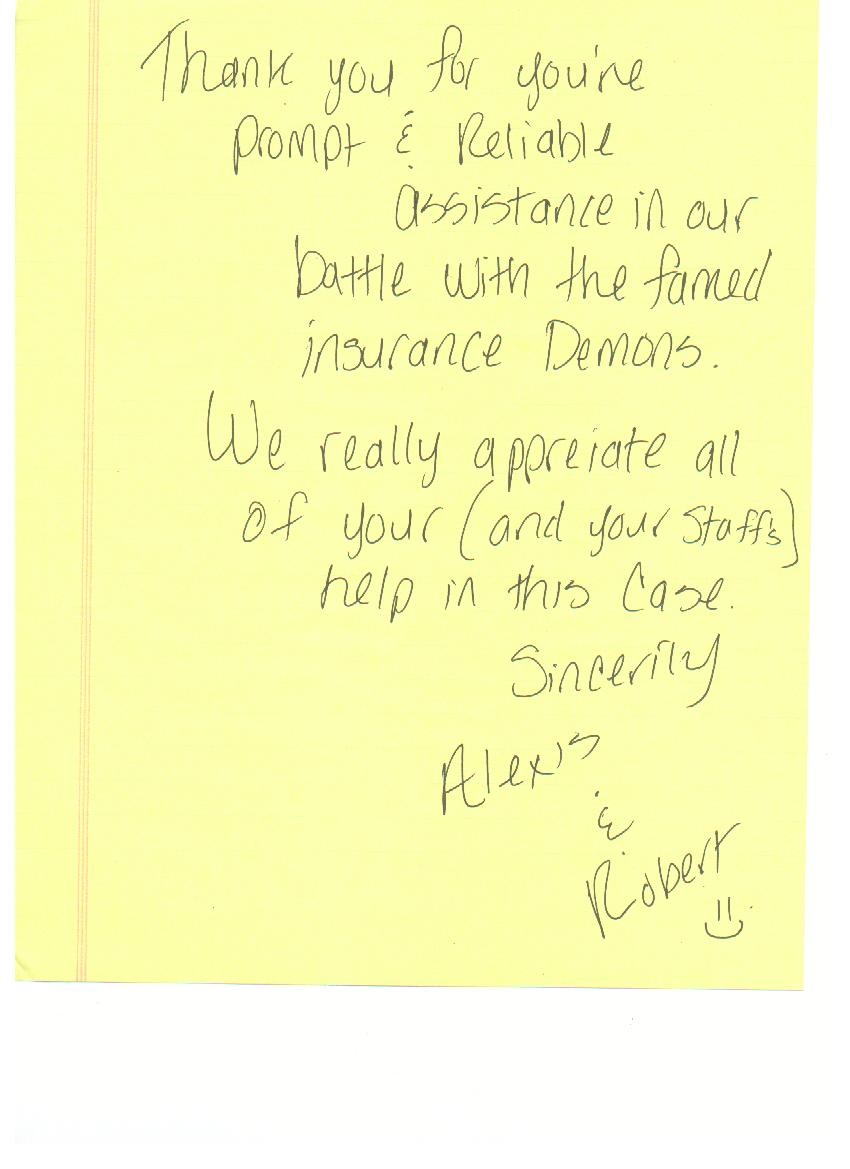 Thank you for you're
prompt & Reliable
assistance in our
battle with the famed
insurance Demons.
We really appreiate all
of your (and your staff's)
help in this case.
Sincerily
Alexis
&
Robert